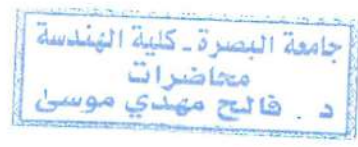 جامعة البصرة - كلية الهندسة
محاضرات
د . فالح مهدي موسى